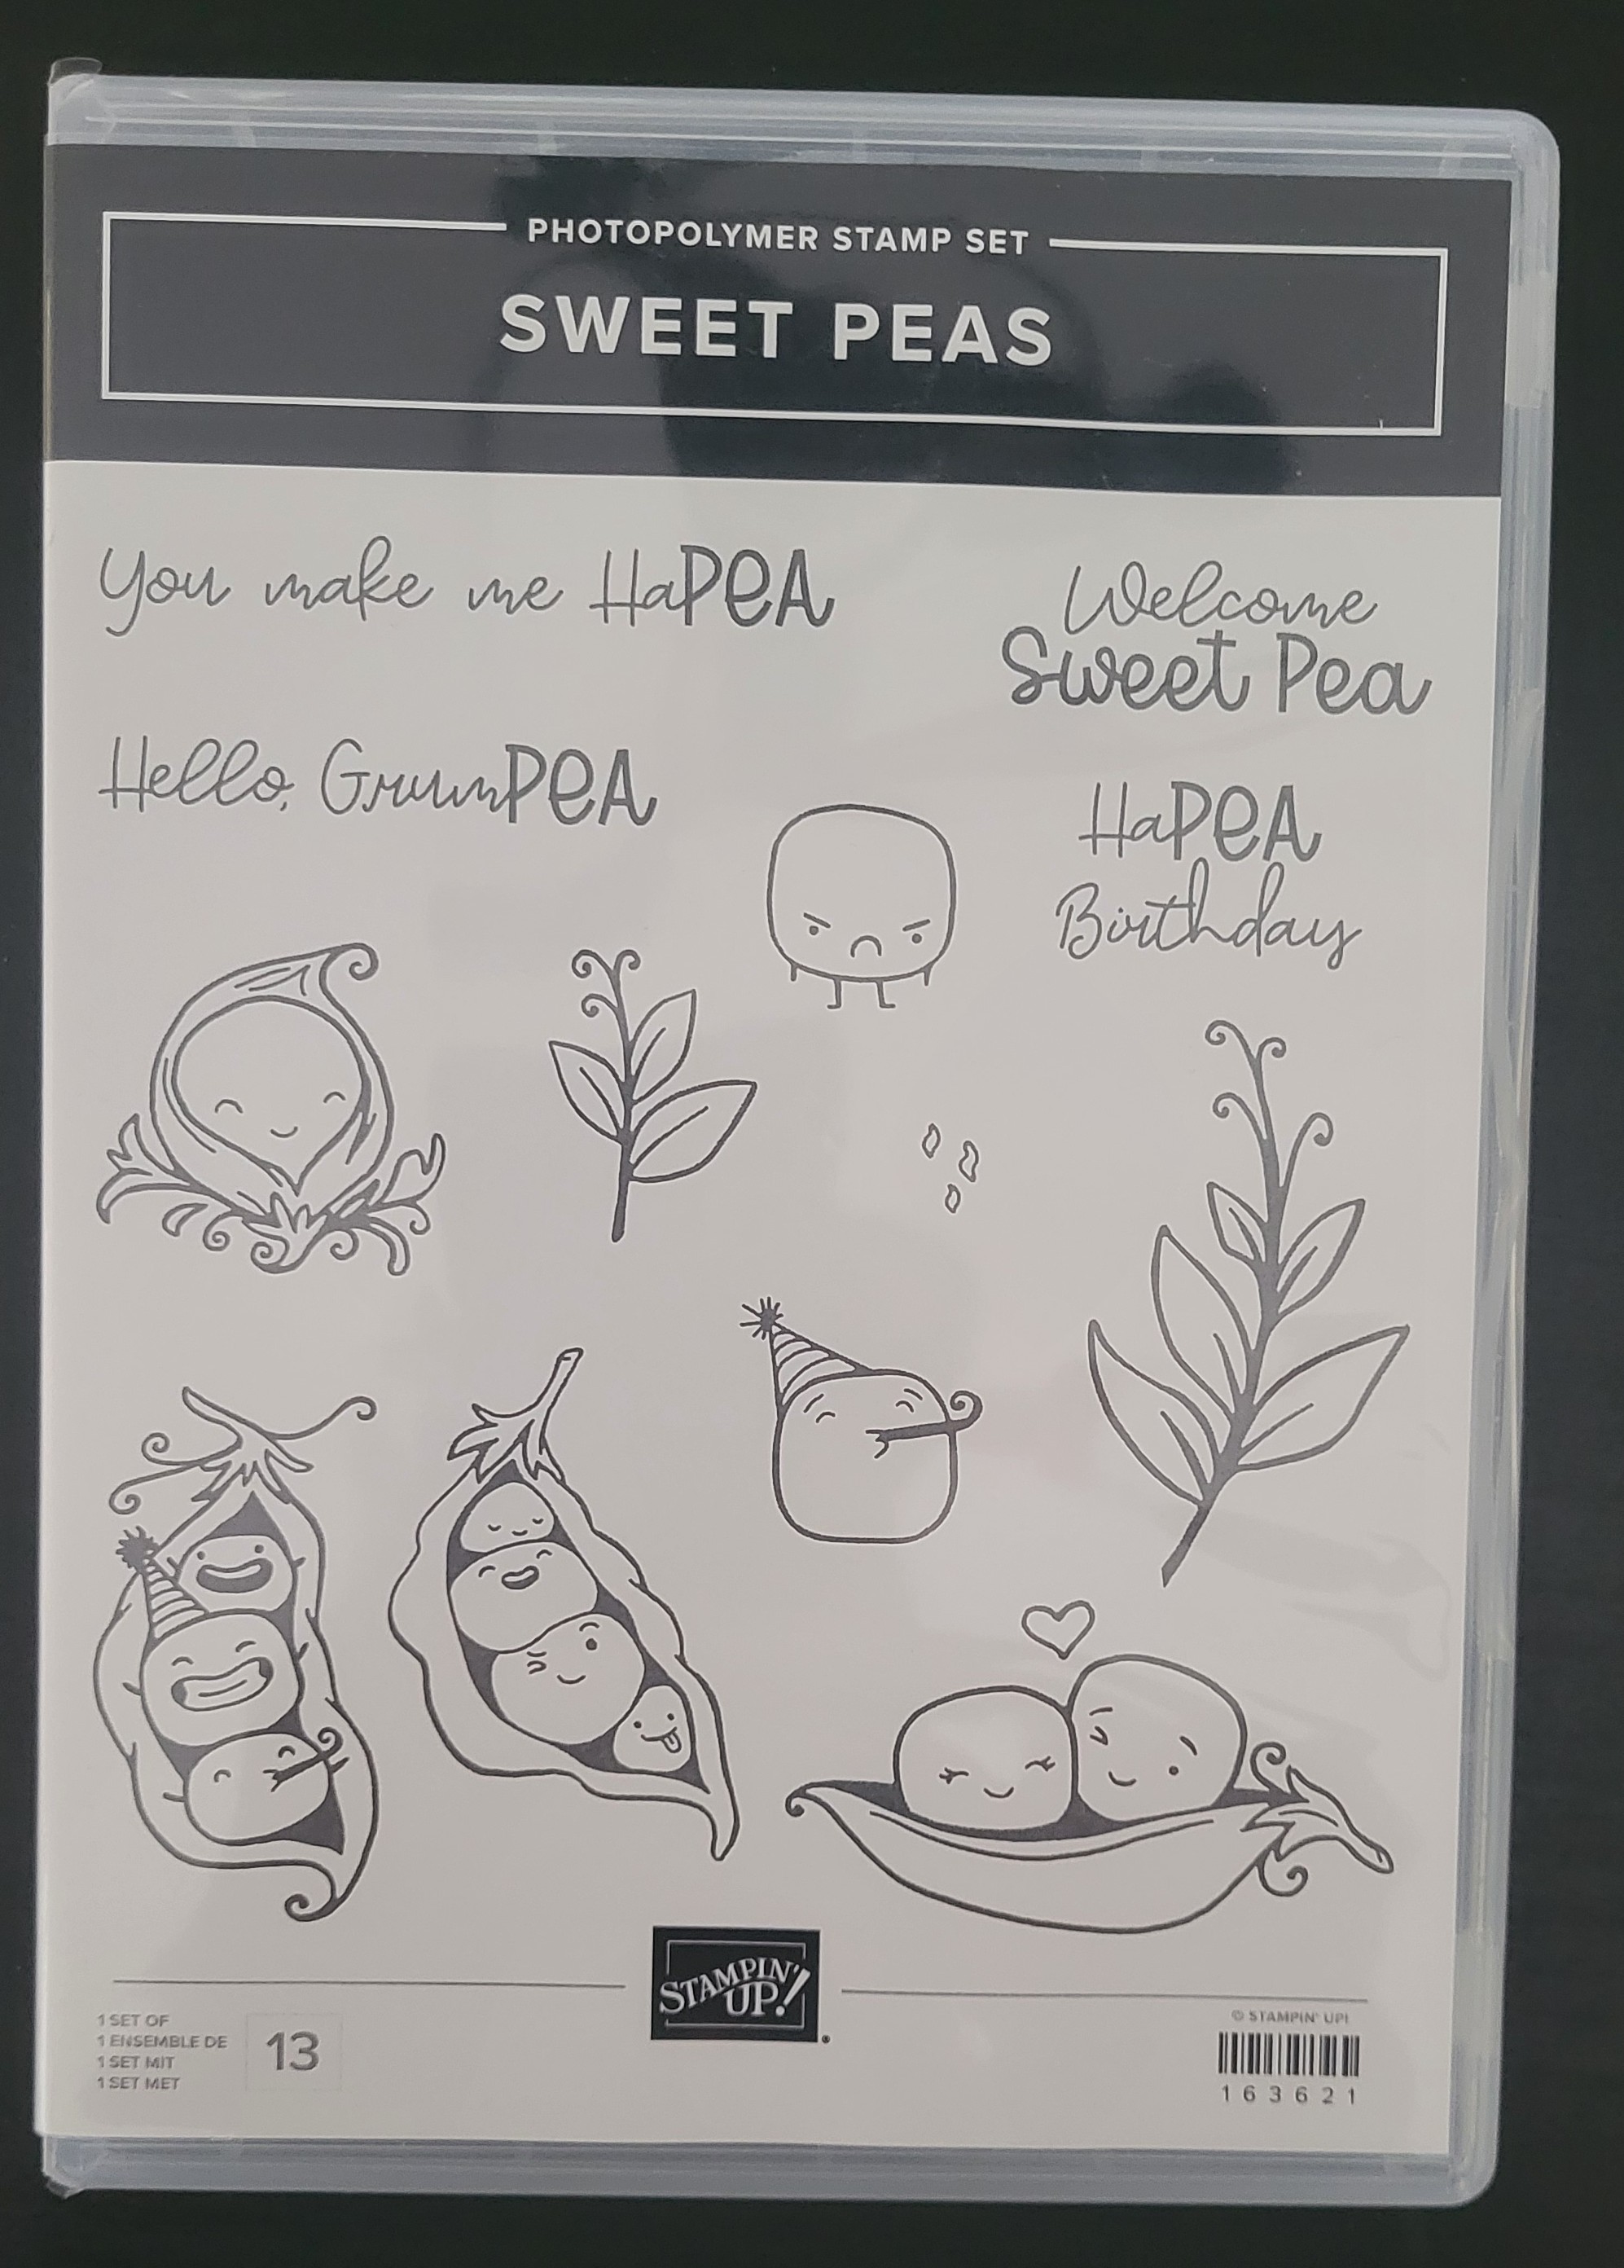 PHOTOPOLYMER STAMP SET
SWEET PEAS
You make me HaPEA
Welcome
Sweet Pea
Hello, GrumPEA
HaPEA
Birthday
STAMPIN'
UP!
®
1 SET OF
1 ENSEMBLE DE
1 SET MIT
1 SET MET
13
© STAMPIN' UP!
163621